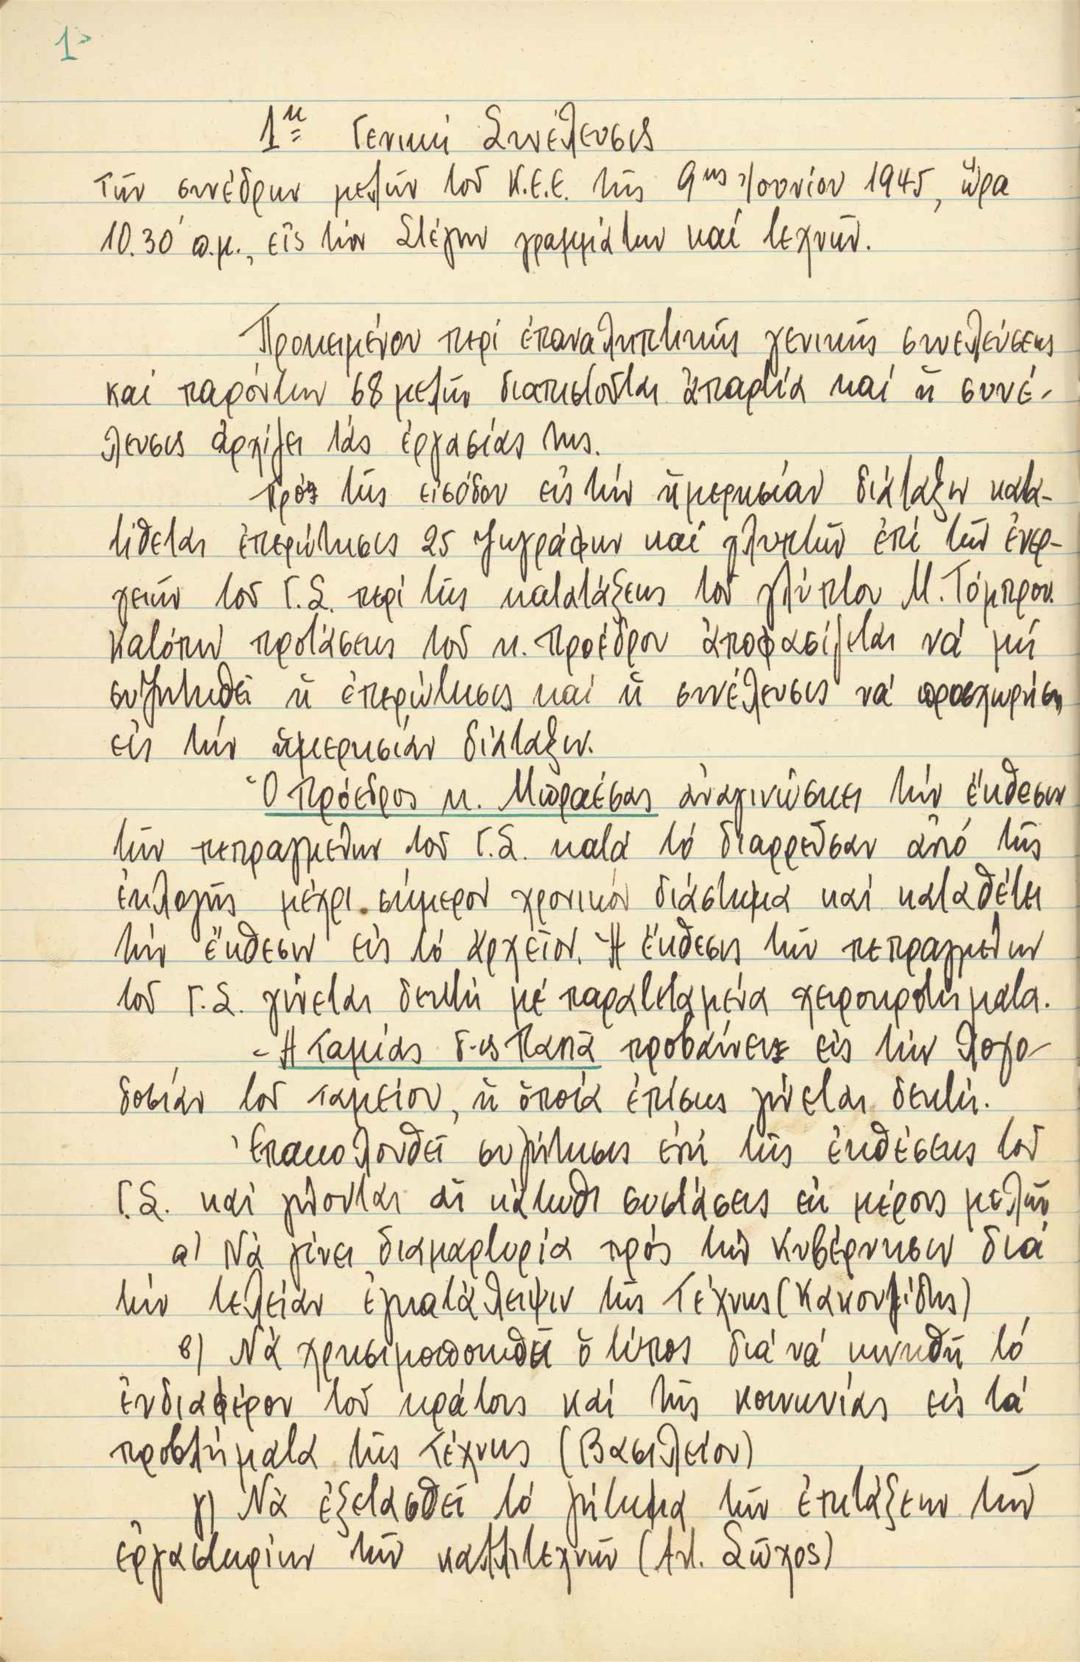 1>
1η Γενική Συνέλευσις
τῶν συνέδρων μελῶν τοῦ Κ.Ε.Ε. τῆς 9ης Ἰουνίου 1945, ὥρα
10.30 π.μ., εἰς τὴν Στέγην γραμμάτων καὶ τεχνῶν.
Προκειμένου περὶ ἐπαναληπτικῆς γενικῆς συνελεύσεως
καὶ παρόντων 68 μελῶν διαπιστοῦται ἀπαρτία καὶ ἡ συνέ-
λευσις ἀρχίζει τὰς ἐργασίας της.
Πρὸ τῆς εἰσόδου εἰς τὴν ἡμερησίαν διάταξιν κατα-
τίθεται ἐπερώτησις 25 ζωγράφων καὶ γλυπτῶν ἐπὶ τῶν ἐνερ-
γειῶν τοῦ Γ.Σ. περὶ τῆς κατατάξεως τοῦ γλύπτου Μ. Τόμπρου.
Κατόπιν προτάσεως τοῦ κ. Προέδρου ἀποφασίζεται νὰ μὴ
συζητηθεῖ ἡ ἐπερώτησις καὶ ἡ συνέλευσις νὰ προσχωρήσῃ
εἰς τὴν ἡμερησίαν διάταξιν.
Ὁ Πρόεδρος κ. Μπραέσας ἀναγινώσκει τὴν ἔκθεσιν
τῶν πεπραγμένων τοῦ Γ.Σ. κατὰ τὸ διαρρεῦσαν ἀπὸ τῆς
ἐκλογῆς μέχρι σήμερον χρονικόν διάστημα καὶ καταθέτει
τὴν ἔκθεσιν εἰς τὸ ἀρχεῖον. Ἡ ἔκθεσις τῶν πεπραγμένων
τοῦ Γ.Σ. γίνεται δεκτὴ μὲ παρατεταμένα χειροκροτήματα.
- Ἡ Ταμίας δ-ις Παπᾶ προβαίνει εἰς τὴν λογο-
δοσίαν τοῦ ταμείου, ἡ ὁποία ἐπίσης γίνεται δεκτή.
Ἐπακολουθεῖ συζήτησις ἐπὶ τῆς ἐκθέσεως τοῦ
Γ.Σ. καὶ γίνονται αἱ κάτωθι συστάσεις ἐκ μέρους μελῶν
α) Νὰ γίνει διαμαρτυρία πρὸς τὴν Κυβέρνησιν διὰ
τὴν τελείαν ἐγκατάλειψιν τῆς Τέχνης (Κακουλίδης)
β) Νὰ χρησιμοποιηθεῖ ὁ τύπος διὰ νὰ κινηθῇ τὸ
ἐνδιαφέρον τοῦ κράτους καὶ τῆς κοινωνίας εἰς τὰ
προβλήματα τῆς Τέχνης (Βασιλείου)
γ) Νὰ ἐξετασθεῖ τὸ ζήτημα τῶν ἐπιτάξεων τῶν
ἐργαστηρίων τῶν καλλιτεχνῶν (Ἀντ. Σῶχος)